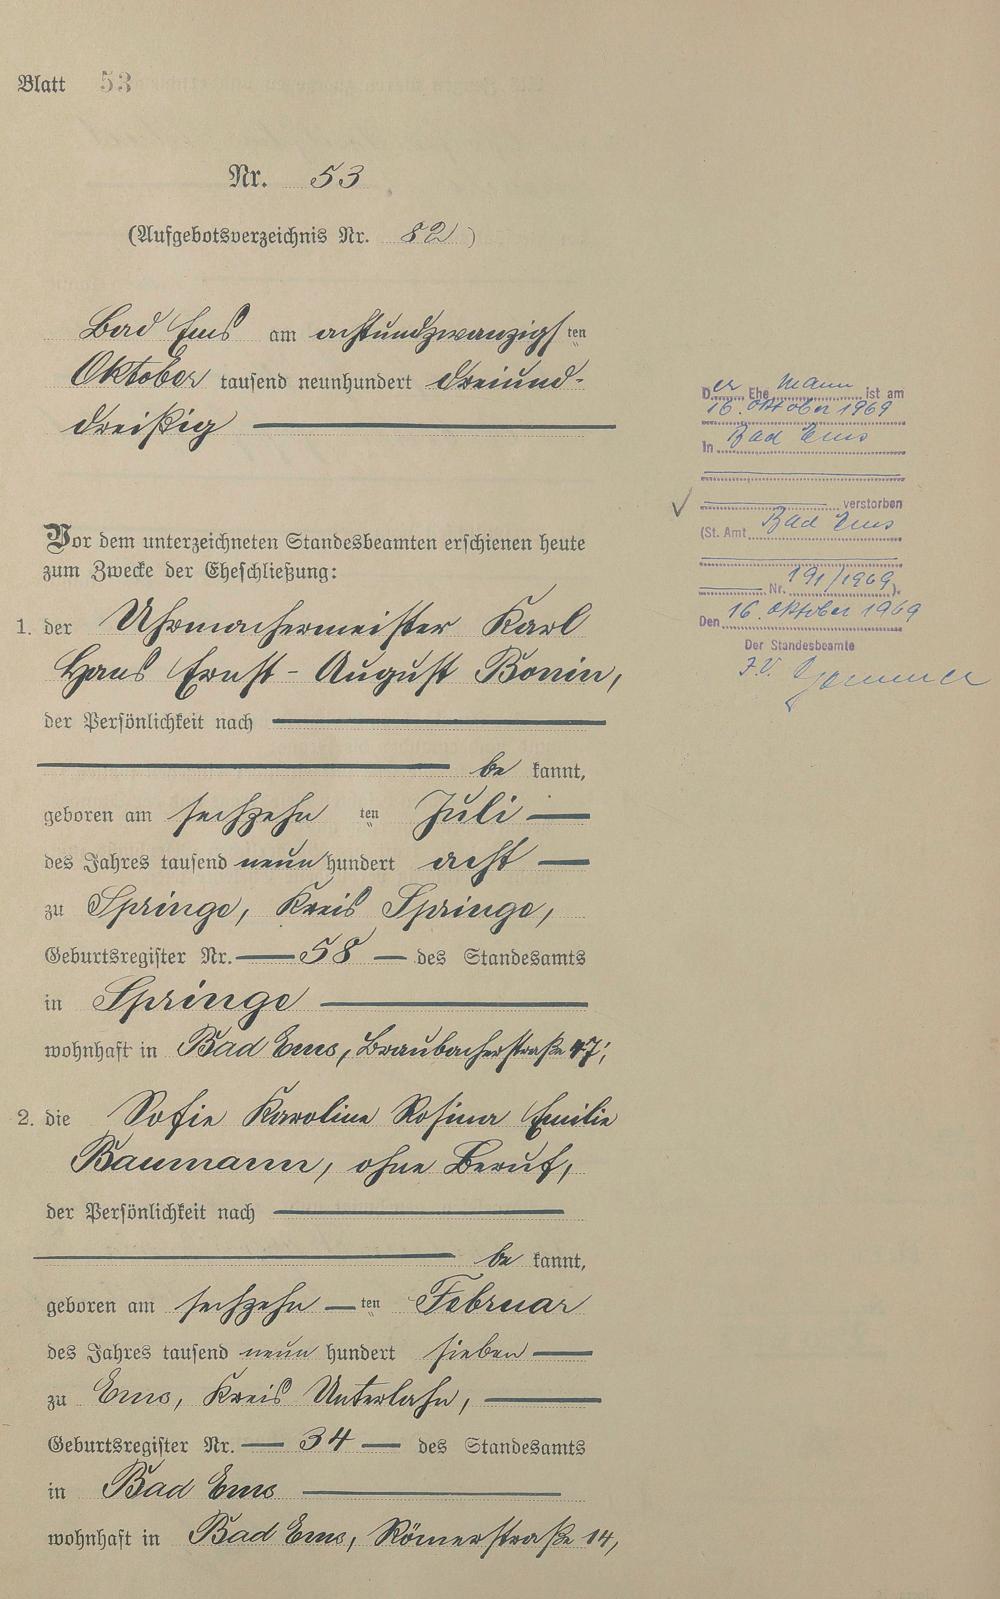 Blatt 53
Nr. 53
(Aufgebotsverzeichnis Nr. 82)
Bad Ems am achtundzwanzigsten
Oktober tausend neunhundert dreiund-
dreißig
Vor dem unterzeichneten Standesbeamten erschienen heute
zum Zwecke der Eheschließung:
1. der Uhrmachermeister Karl
Hans Ernst-August Bonin,
der Persönlichkeit nach
be kannt,
geboren am sechzehn ten Juli
des Jahres tausend neun hundert acht
zu Springe, Kreis Springe,
Geburtsregister Nr. 58 des Standesamts
in Springe
wohnhaft in Bad Ems, Braubacherstraße 47;
2. die Sofie Karoline Rosina Emilie
Baumann, ohne Beruf,
der Persönlichkeit nach
be kannt,
geboren am sechzehn ten Februar
des Jahres tausend neun hundert sieben
zu Ems, Kreis Unterlahn,
Geburtsregister Nr. 34 des Standesamts
in Bad Ems
wohnhaft in Bad Ems, Römerstraße 14,
Der Ehe Mann ist am
16. Oktober 1969
In Bad Ems
verstorben
(St. Amt Bad Ems
Nr. 191/1969).
Den 16. Oktober 1969
Der Standesbeamte
J.V.